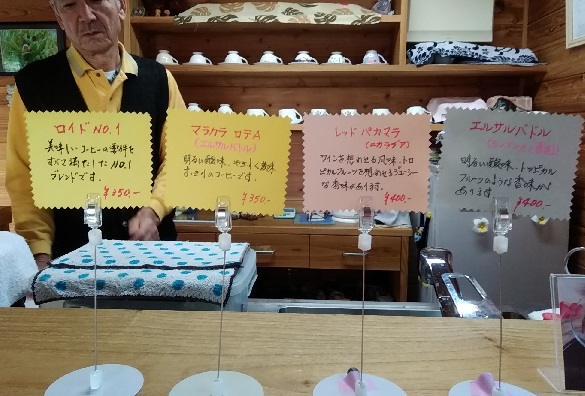 ロイド NO.1
美味しいコーヒーの条件を
すべて満たしたNO.1
ブレンドです。
¥350.-
マラカラ ロテA
(エルサルバドル)
明るい酸味、やさしく美味
まったりのコーヒーです。
¥350.-
レッド パカマラ
(ニカラグア)
ワインを想わせる風味、トロ
ピカルフルーツを想わせるジューシー
な香味があります。
¥400.-
エルサルバドル
明るい酸味、トロピカル
フルーツのような香味が
あります
¥400.-